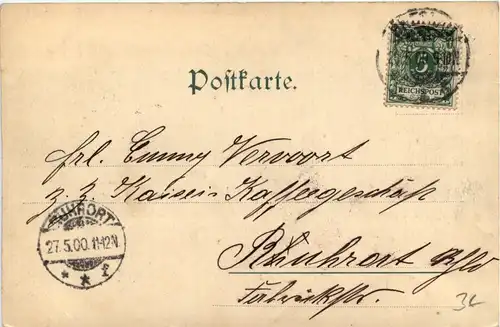 5
REICHSPOST
Postkarte.
Frl. Emmy Vervoort
z. Z. Kaisers Kaffeegeschäft
RUHRORT
27.5.00.11-12N.
* * f
Ruhrort
Fabrikstr.